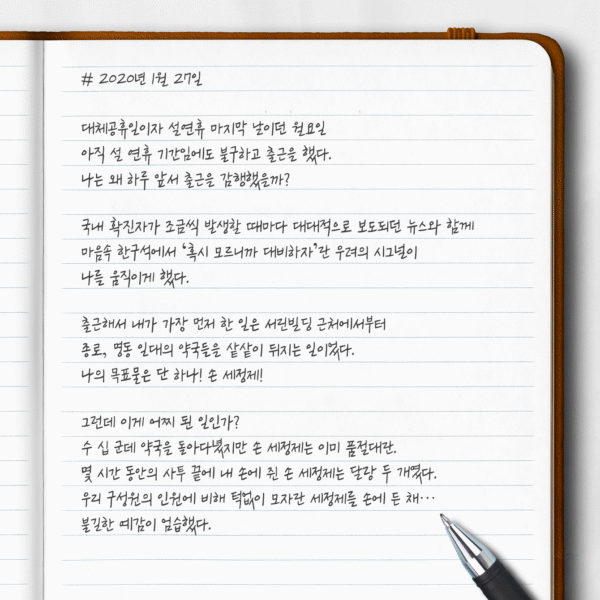 # 2020년 1월 27일
대체공휴일이자 설연휴 마지막 날이던 월요일
아직 설 연휴 기간임에도 불구하고 출근을 했다.
나는 왜 하루 앞서 출근을 감행했을까?
국내 확진자가 조금씩 발생할 때마다 대대적으로 보도되던 뉴스와 함께
마음속 한구석에서 '혹시 모르니까 대비하자'란 우려의 시그널이
나를 움직이게 했다.
출근해서 내가 가장 먼저 한 일은 서린빌딩 근처에서부터
종로, 명동 일대의 약국들을 샅샅이 뒤지는 일이었다.
나의 목표물은 단 하나! 손 세정제!
그런데 이게 어찌 된 일인가?
수 십 군데 약국을 돌아다녔지만 손 세정제는 이미 품절대란.
몇 시간 동안의 사투 끝에 내 손에 쥔 손 세정제는 달랑 두 개였다.
우리 구성원의 인원에 비해 턱없이 모자란 세정제를 손에 든 채…
불길한 예감이 엄습했다.